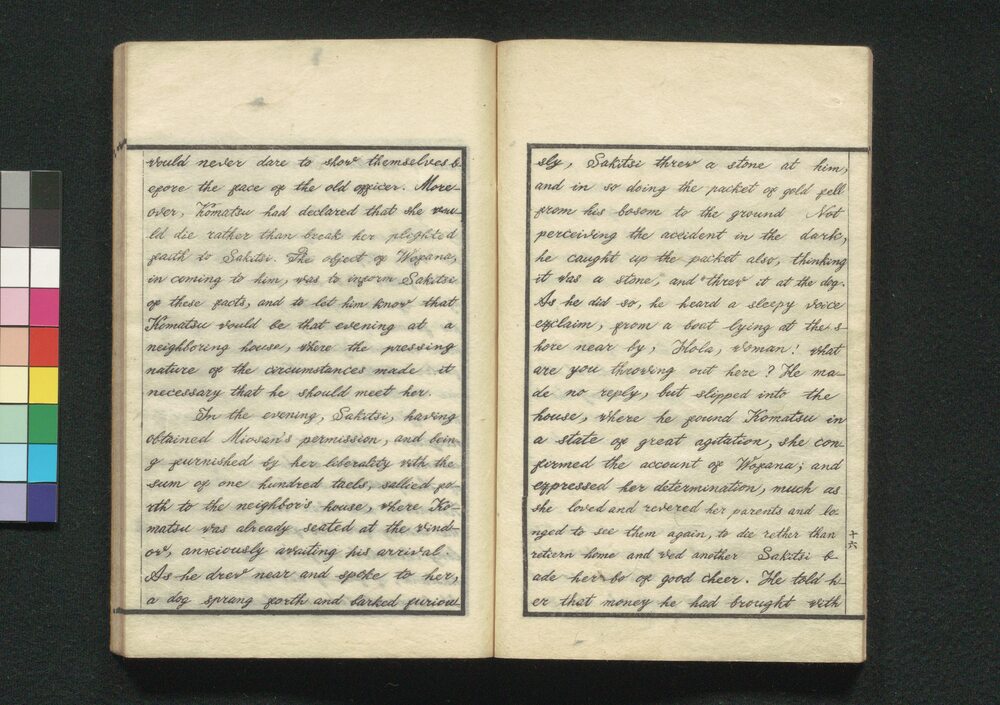 would never dare to show themselves b
efore the face of the old officer. More-
over, Komatsu had declared that she wou-
ld die rather than break her plighted
faith to Sakitsi. The object of Wofana,
in coming to him, was to inform Sakitsi
of these facts, and to let him know that
Komatsu would be that evening at a
neighboring house, where the pressing
nature of the circumstances made it
necessary that he should meet her.
In the evening, Sakitsi, having
obtained Miosan's permission, and bein
g furnished by her liberality with the
sum of one hundred taels, sallied fo-
rth to the neighbor's house, where Ko-
matsu was already seated at the wind-
ow, anxiously awaiting his arrival.
As he drew near and spoke to her,
a dog sprang forth and barked furiou
sly, Sakitsi threw a stone at him,
and in so doing the packet of gold fell
from his bosom to the ground Not
perceiving the accident in the dark,
he caught up the packet also, thinking
it was a stone, and threw it at the dog.
As he did so, he heard a sleepy voice
exclaim, from a boat lying at the s
hore near by, Hola, woman! what
are you throwing out here? He ma-
de no reply, but slipped into the
house, where he found Komatsu in
a state of great agitation, she con-
firmed the account of Wofana; and
expressed her determination, much as
she loved and revered her parents and lo
nged to see them again, to die rether than
retiern home and wed another Sakitsi b-
ade her bo of good cheer. He told h-
er that money he had brought with
十六